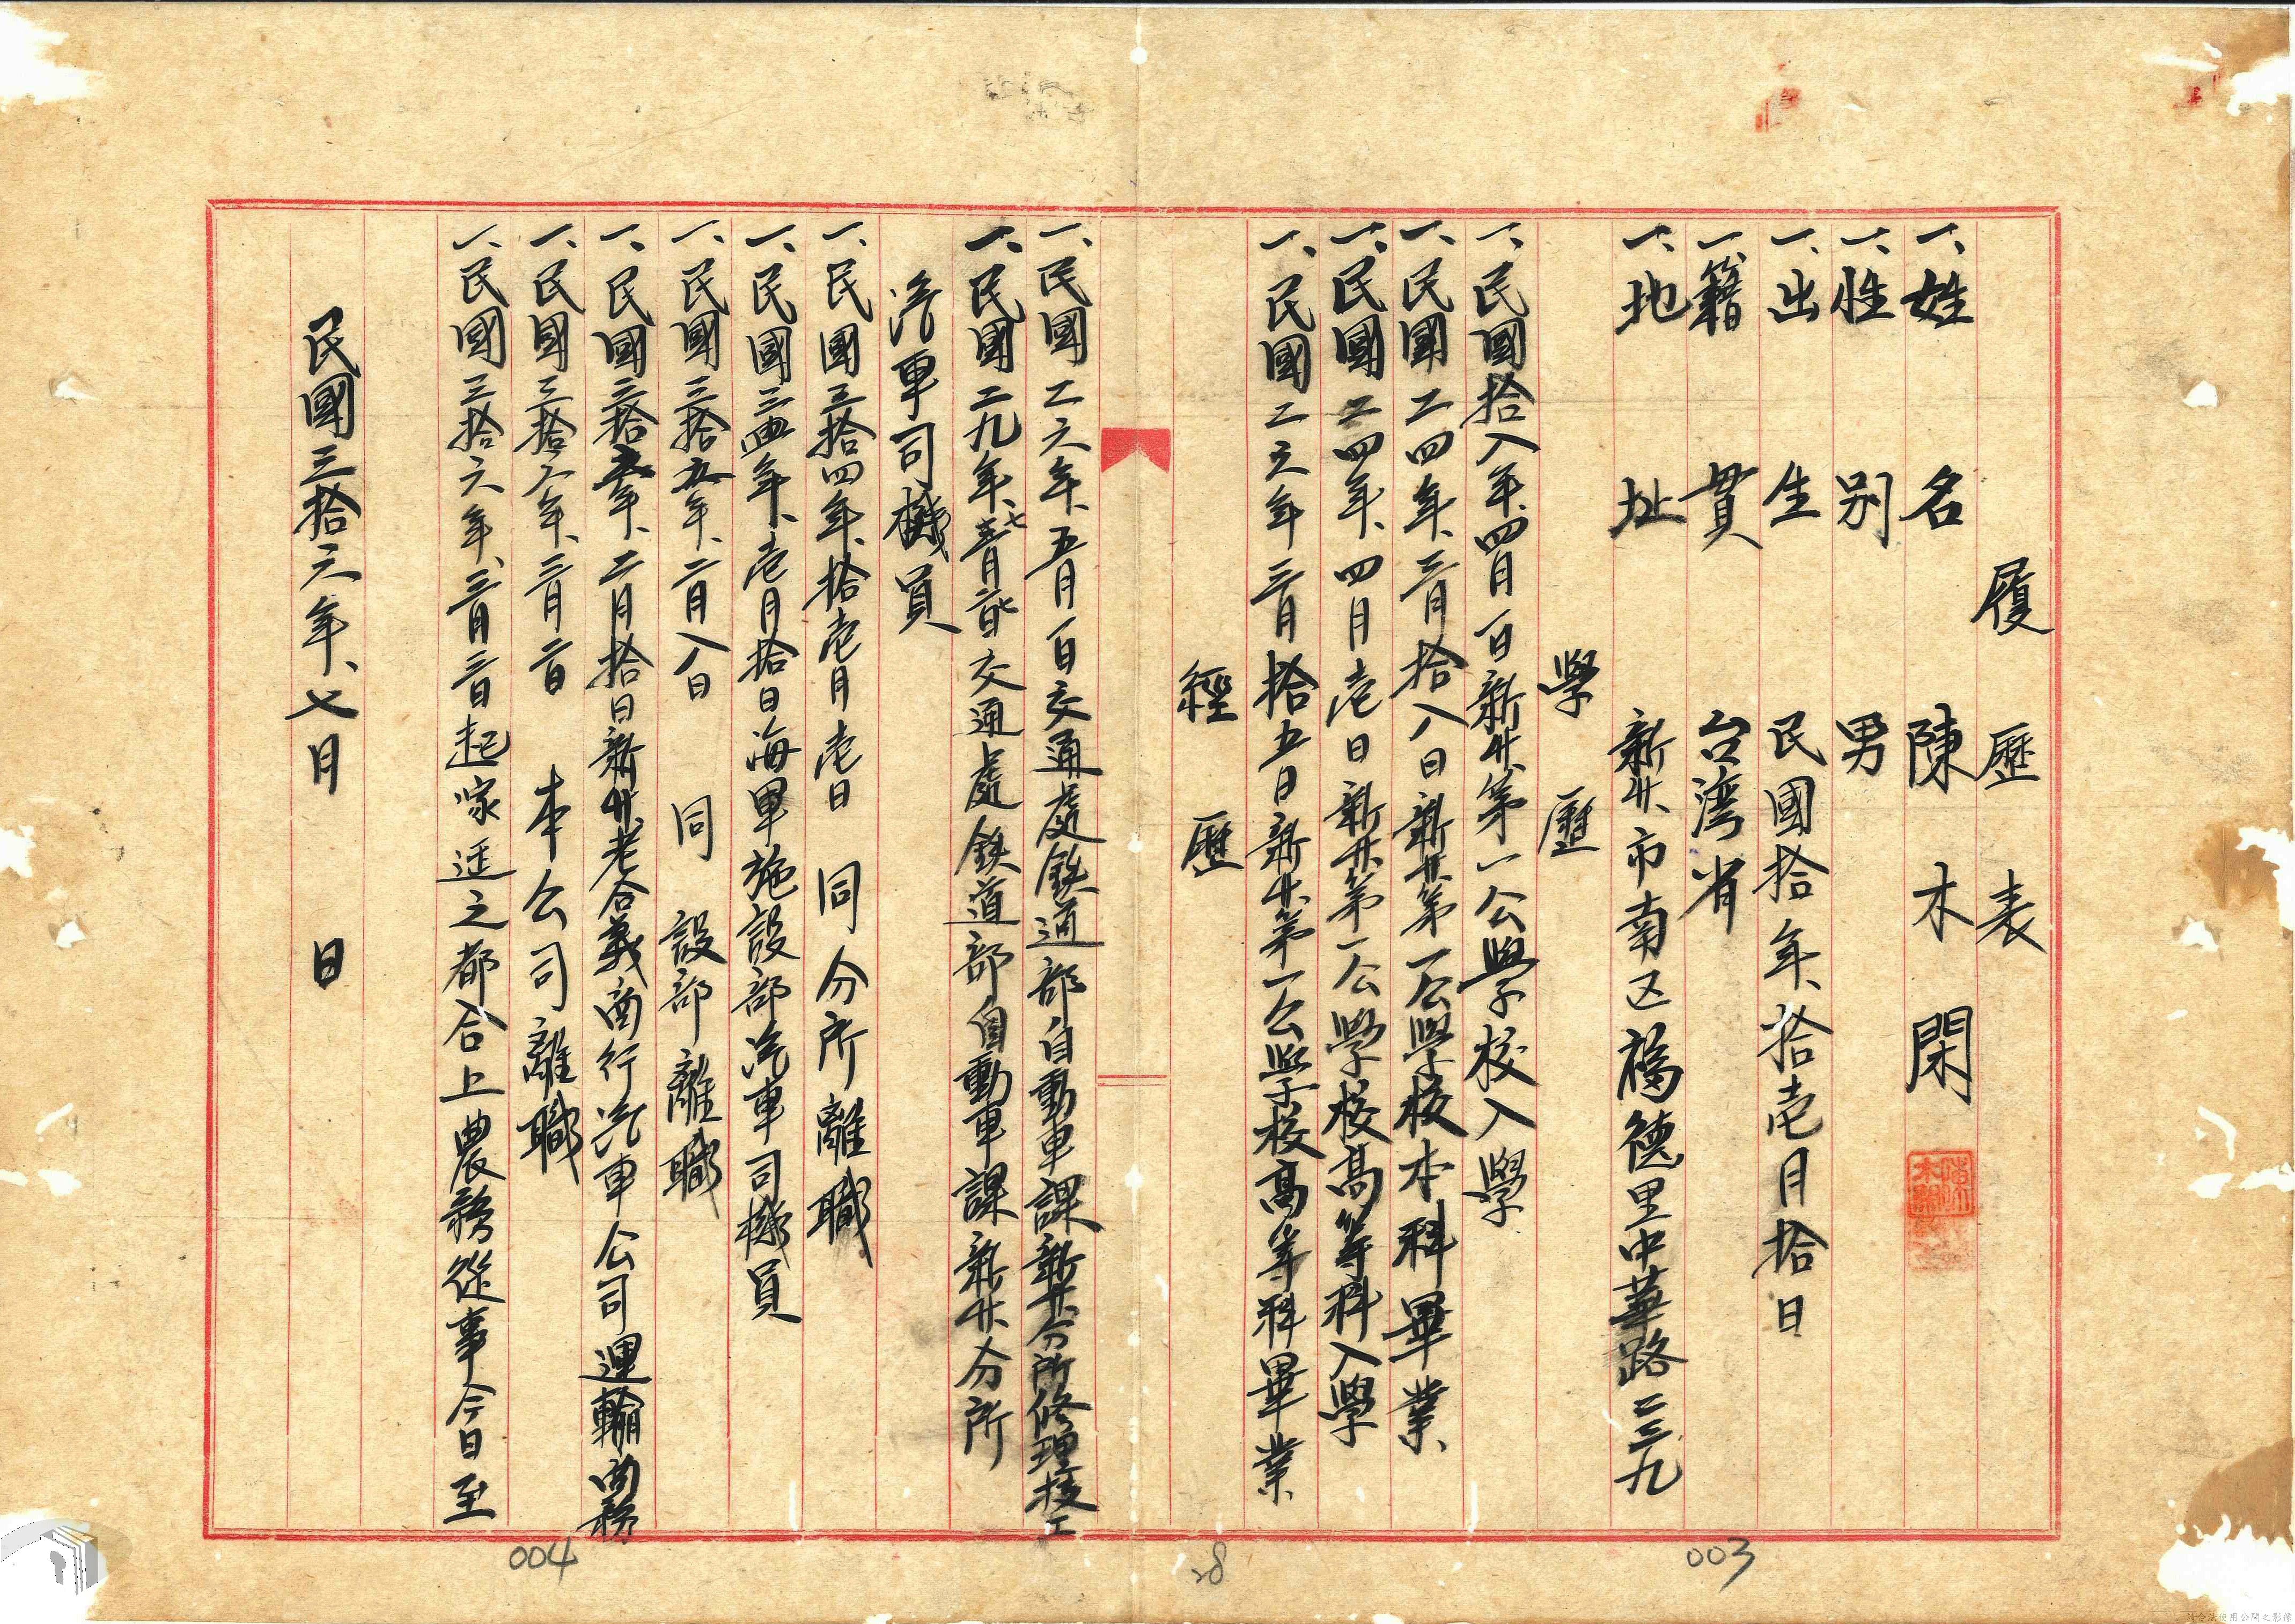 履歷表
一、姓名 陳木閑
一、性別 男
一、出生 民國拾年、拾壱月拾日
一、籍貫 台湾省
一、地址 新竹市南区福德里中華路二三九
學歷
一、民國拾八年、四月一日新竹第一公學校入學
一、民國二四年、三月拾八日新竹第一公學校本科畢業、
一、民國二四年、四月壱日新竹第一公學校高等科入學
一、民國二六年三月拾五日新竹第一公學校高等科畢業、
經歷
一、民國二六年、五月一日交通處鉄道部自動車課新竹分所修理技工
一、民國二九年、七月交通處鉄道部自動車課新竹分所
汽車司機員
一、民國三拾四年、拾壱月壱日 同分所離職
一、民國三四年、壱月拾日海軍施設部汽車司機員
一、民國三拾五年、二月八日 同 設部離職
一、民國三拾五年、二月拾日新竹老合義商行汽車公司運輸商務
一、民國三拾六年、三月二日 本公司離職
一、民國三拾六年、三月三日起家庭之都合上農務從事今日至
民國三拾六年、七月 日
003
28
004